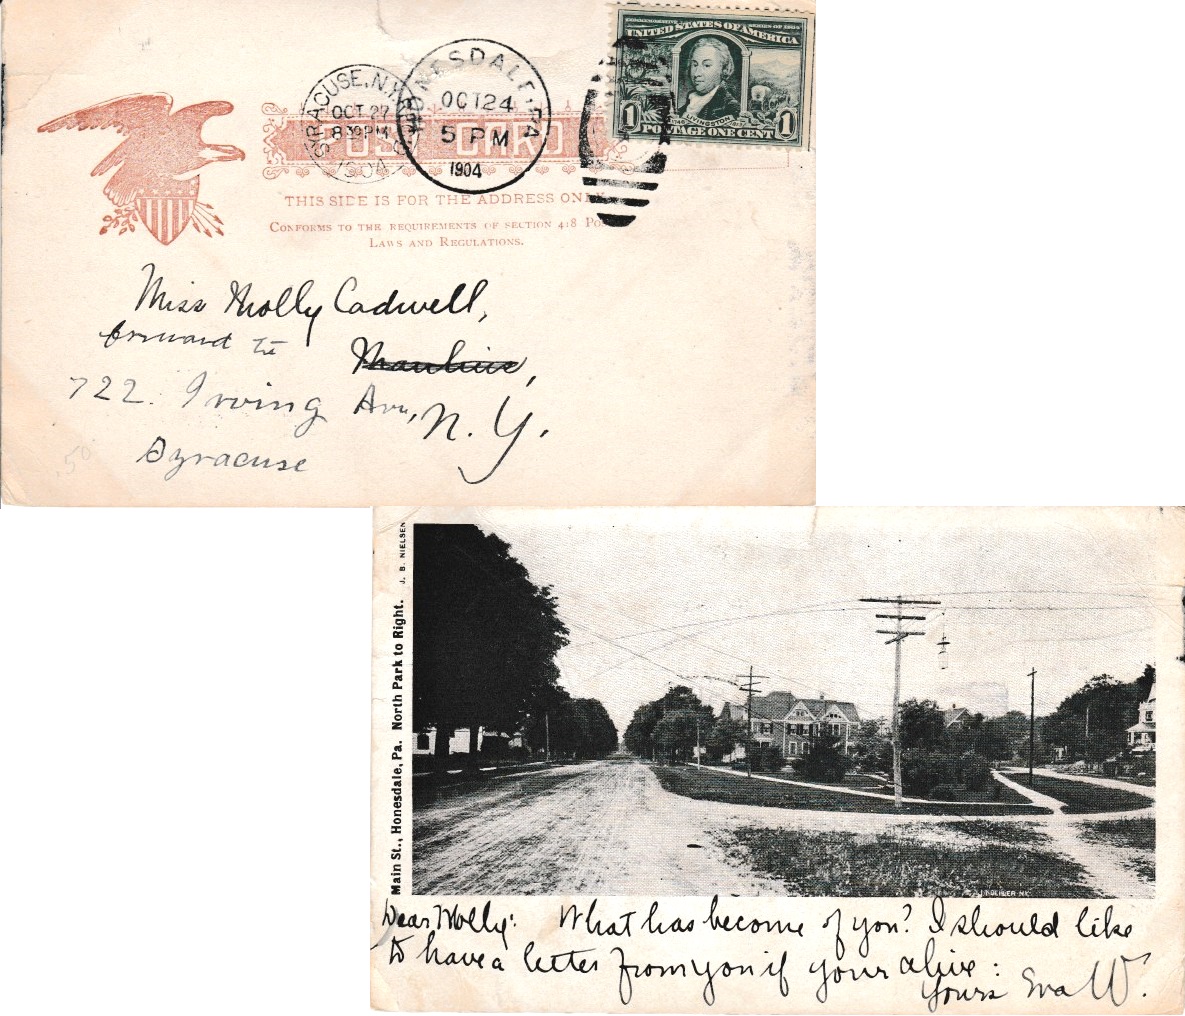 COMMEMORATIVE SERIES OF 1904
UNITED STATES OF AMERICA
LIVINGSTON
1 1
POSTAGE ONE CENT
SYRACUSE, N.Y.
OCT 27
8 30 PM
1904
HONESDALE, PA.
OCT 24
5 PM
1904
POST CARD
THIS SIDE IS FOR THE ADDRESS ONLY
CONFORMS TO THE REQUIREMENTS OF SECTION 418 Po
LAWS AND REGULATIONS.
Miss Molly Cadwell,
forward to Manlius,
722. Irving Ave, N. Y.
Syracuse
50
Main St., Honesdale, Pa. North Park to Right. J. B. NIELSEN
Dear Molly: What has become of you? I should like
to have a letter from you if your alive:
Yours Eva W.